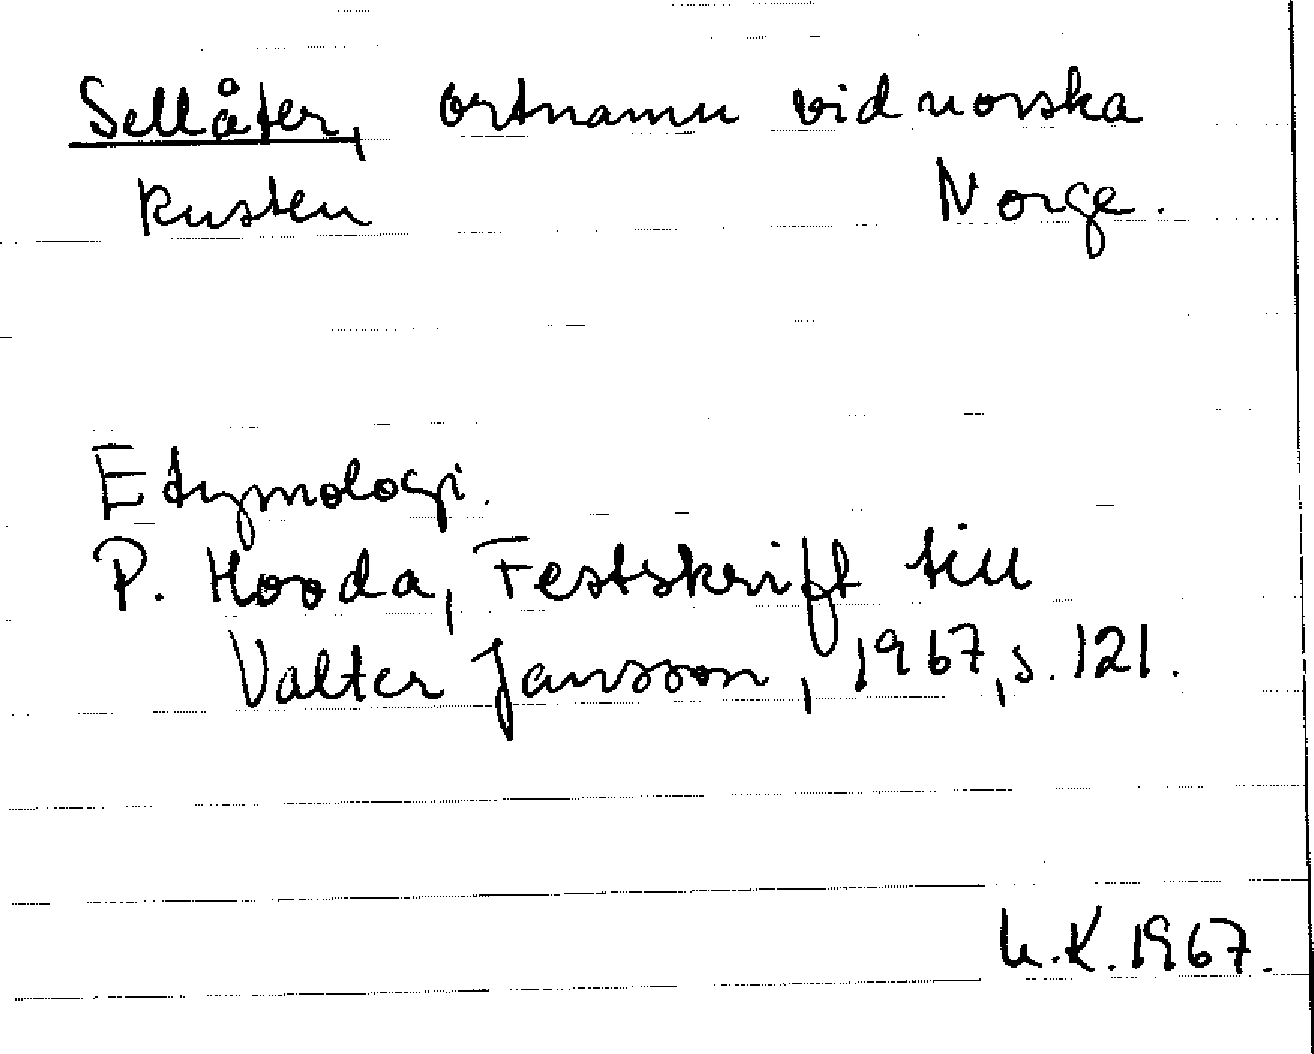 Sellåter, ortnamn vid norska
kusten Norge.
Etymologi.
P. Hovda, Festskrift till
Valter Jansson, 1967, s. 121.
U.K. 1967.